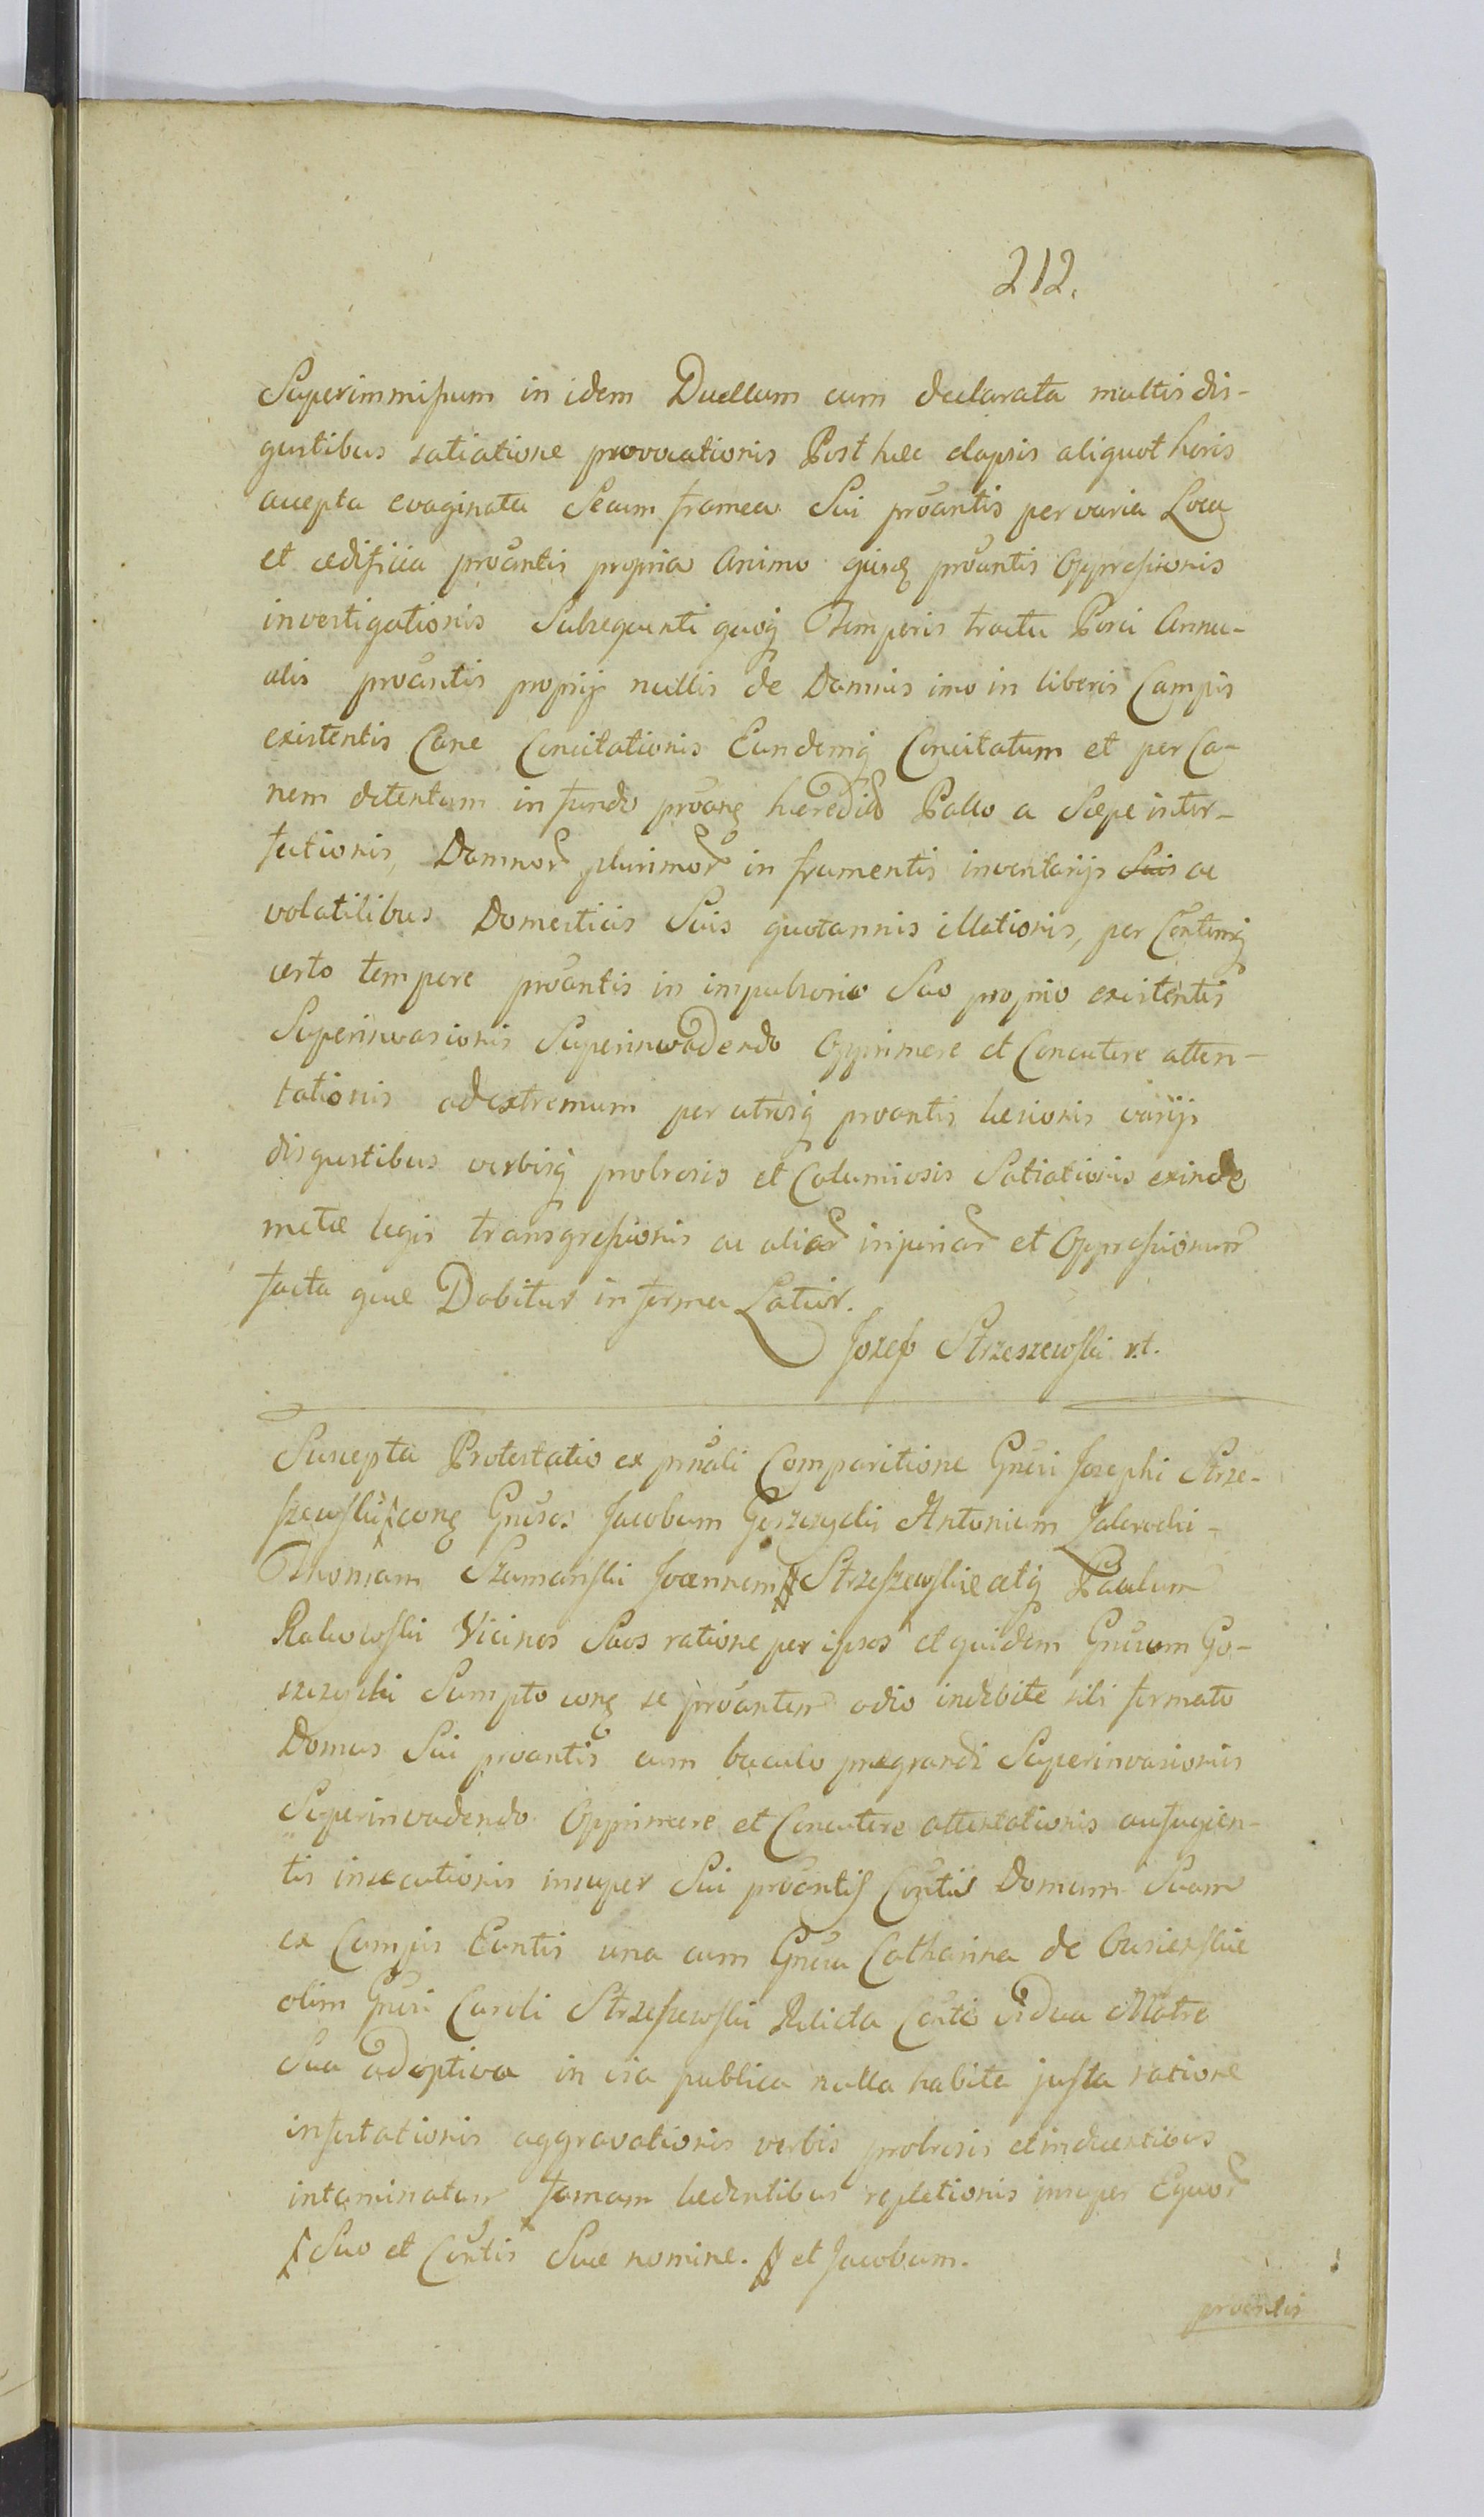 212.
Superimmissum in idem Duellum cum declarata multis dis-
gustibus satiatione provocationis Post hæc elapsis aliquot horis
accepta evaginata Secum framea Sui proantis per varia Loca
et ædificia proantis propria Animo ejusq proantis Oppressionis
investigationis Subsequenti quoq Temporis tractu Porci Annu-
alis proantis proprij nullis de Damnis imo in liberis Campis
existentis Cane Concitationis Eundemq Concitatum et per Ca-
nem detentum in fundo proang hæredito Pallo a Sæpe inter-
fectionis, Damnor plurimor in frumentis inventarijs Suis ac
volatilibus Domesticis Suis quotannis illationis, per Contemq
certo tempore proantis in impulsorio Suo proprio existentis
Superinvasionis Superinvadendo Opprimere et Concutere atten-
tationis ad extremum per utrosq proantis læsionis varijs
disgustibus verbisq probrosis et Calumiosis Satiationis exinde
metæ legis transgressionis ac aliar injuriar et Oppressionum
facta quæ Dabitur in forma Latior.
Jozef Strzeszewski r.t.
Suscepta Protestatio ex prnali Comparitione Gnrsi Josephi Strze-
szewski cong Gnrsos Jacobum Goszczycki Antonium Zakrocki-
Thomam Szumanski Joannem # Strzeszewskie atq Paulum
Rakowski Vicinos Suos ratione per ipsos et quidem Gnrsum Go-
szczycki Sumpto cong se proantem odio indebite sibi formato
Domus Sui proantis cum baculo prægrandi Superinvasionis
Superinvadendo Opprimere et Concutere attentationis aufugien-
tis insecutionis insuper Sui proantis Contis Domum Suam
ex Campis Euntis una cum Gnrsa Catharina de Gusienskie
olim Gnrsi Caroli Strzeszewski Relicta Conte vidua Matre
Sua adoptiva in via publica nulla habita justa ratione
infestationis aggravationis verbis probrosis et indicentibus
intaminatam famam lædentibus repletionis insuper Equor
Suo et Contis Suæ nomine. # et Jacobum.
proantis